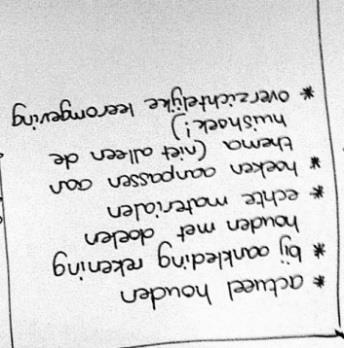 * actueel houden
* bij aankleding rekening
houden met doelen
* echte materialen
* hoeken aanpassen aan
thema (niet alleen de
huishoek!)
* overzichtelijke leeromgeving